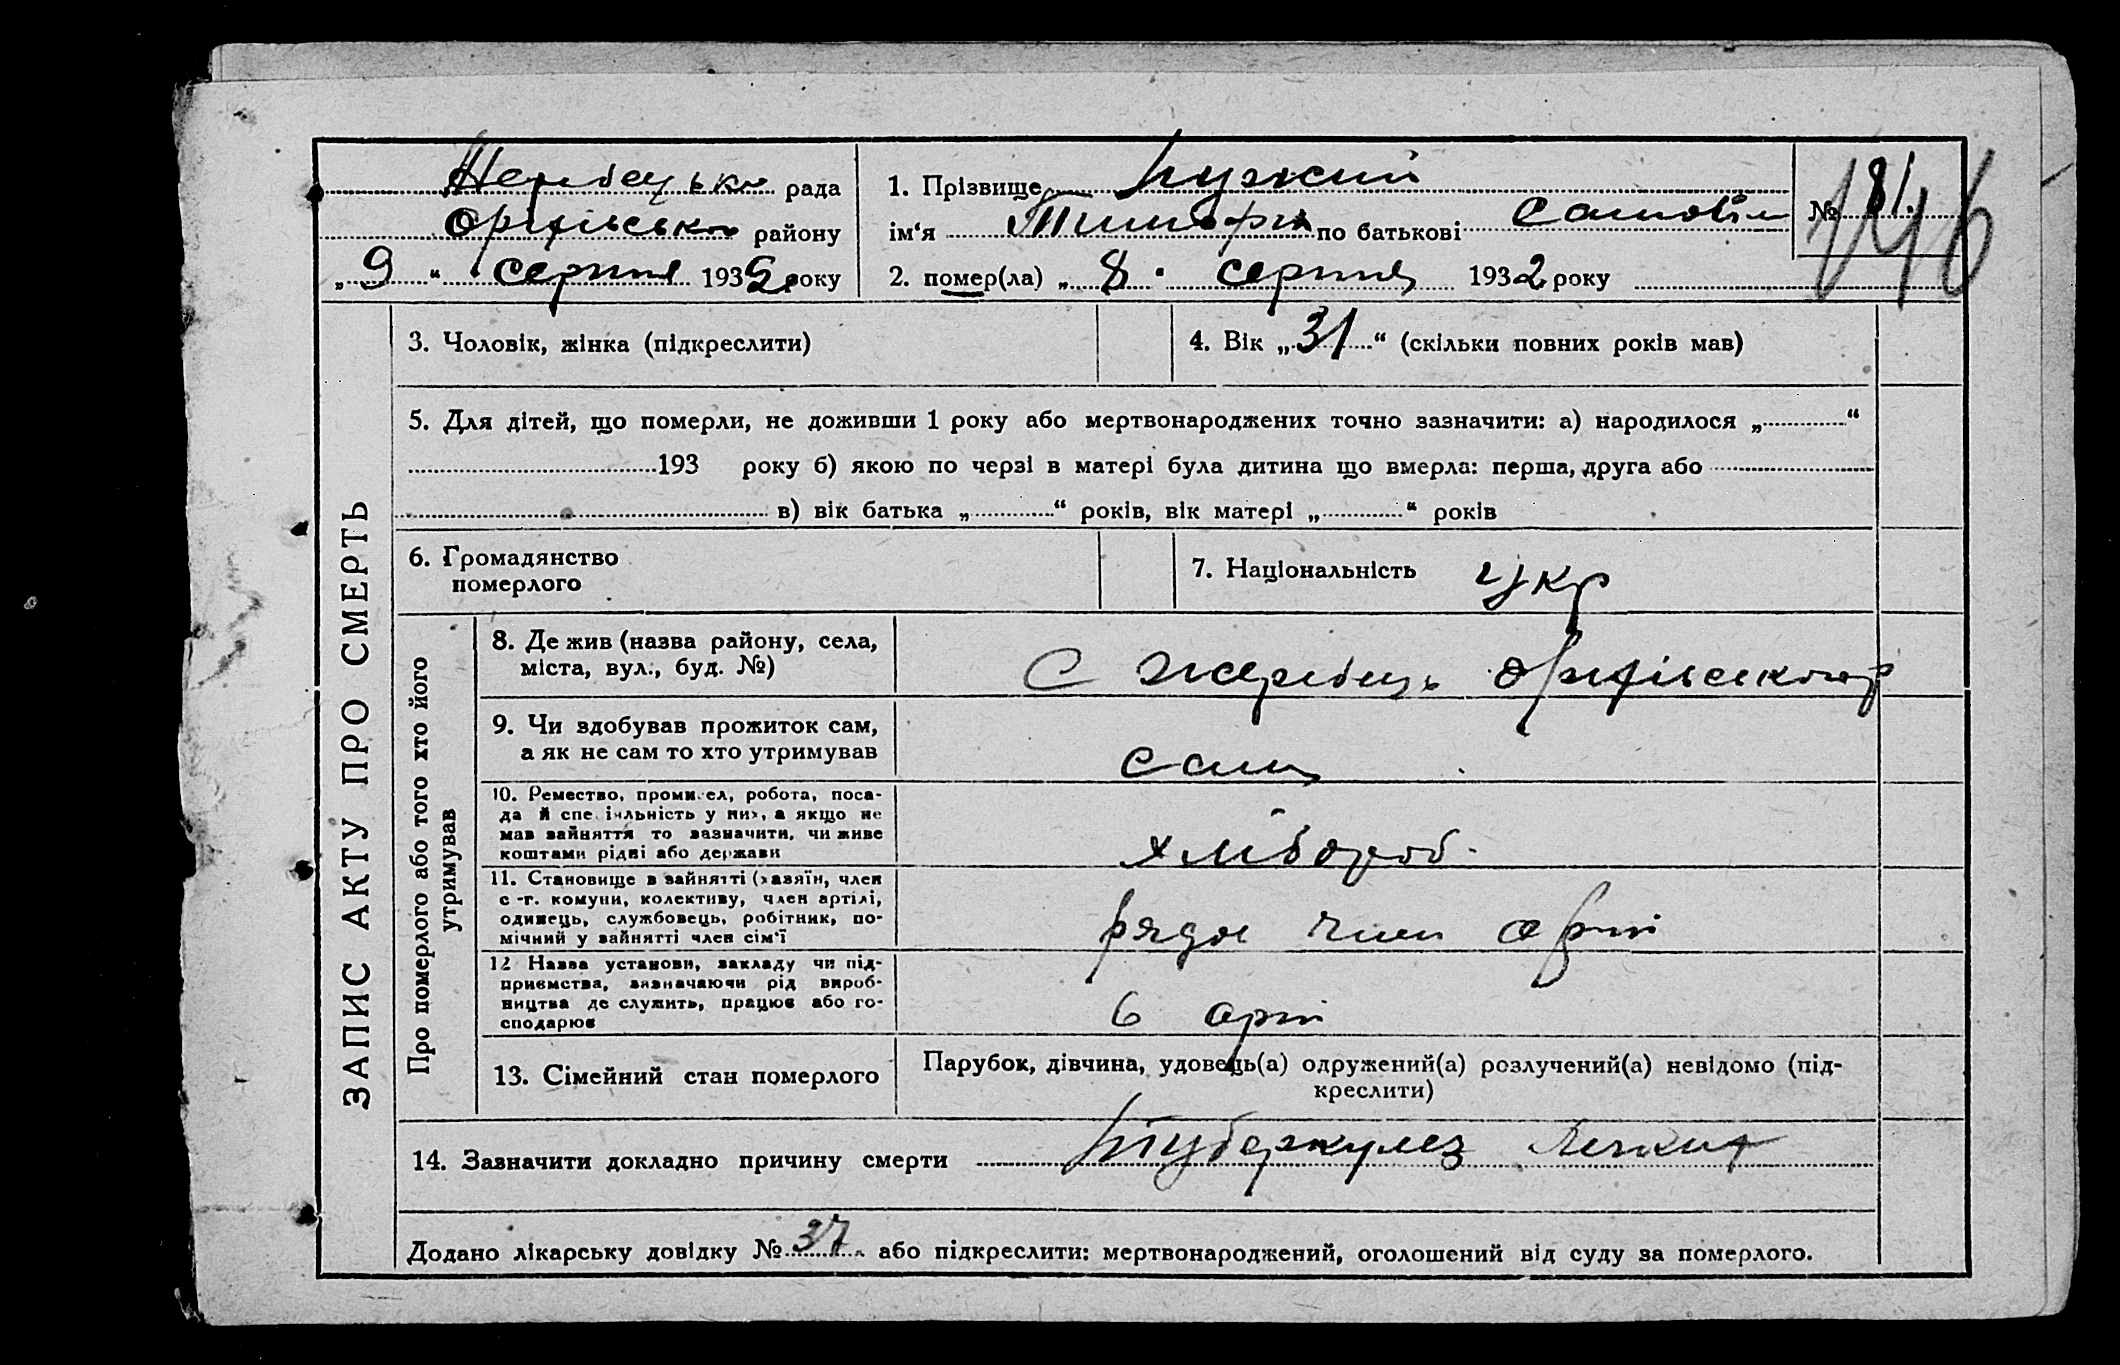 рада
району
„ 9 “ серпня 1932 року
1. Прізвище
ім‘я по батькові
2. помер(ла) „ 8 “ серпня 1932 року
№ 81.
146
ЗАПИС АКТУ ПРО СМЕРТЬ
3. Чоловік, жінка (підкреслити)
4. Вік „ 31 “ (скільки повних років мав)
5. Для дітей, що померли, не доживши 1 року або мертвонароджених точно зазначити: а) народилося „ “
193 року б) якою по черзі в матері була дитина що вмерла: перша, друга або
в) вік батька „ “ років, вік матері „ “ років
6. Громадянство
померлого
7. Національність укр
Про померлого або того хто його
утримував
8. Де жив (назва району, села,
міста, вул., буд. №)
С Жеребець
9. Чи здобував прожиток сам,
а як не сам то хто утримував
сам
10. Ремество, промисел, робота, поса-
да й спеціяльність у них, а якщо не
мав зайняття то зазначити, чи живе
коштами рідні або держави
хлібороб.
11. Становище в зайнятті (хазяїн, член
с.-г. комуни, колективу, член артілі,
одинець, службовець, робітник, по-
мічний у зайнятті член сім‘ї
рядов член арті
12 Назва установи, закладу чи під-
приємства, зазначаючи рід вироб-
ництва де служить, працює або го-
сподарює
в арті
13. Сімейний стан померлого
Парубок, дівчина, удовець(а) одружений(а) розлучений(а) невідомо (під-
креслити)
14. Зазначити докладно причину смерти Туберкулез легких
Додано лікарську довідку № 37 або підкреслити: мертвонароджений, оголошений від суду за померлого.